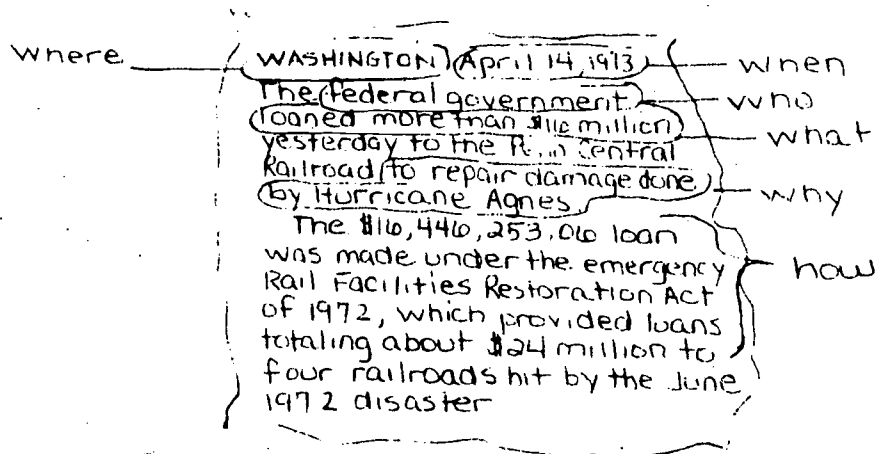 where WASHINGTON April 14, 1973 when
The federal government who
loaned more than $16 million
yesterday to the Penn Central what
Railroad to repair damage done
by Hurricane Agnes why
The $16,446,253.06 loan
was made under the emergency
Rail Facilities Restoration Act how
of 1972, which provided loans
totaling about $24 million to
four railroads hit by the June
1972 disaster